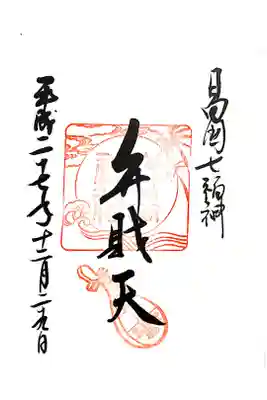 日向国七福神
弁財天
平成二十七年十二月二十九日